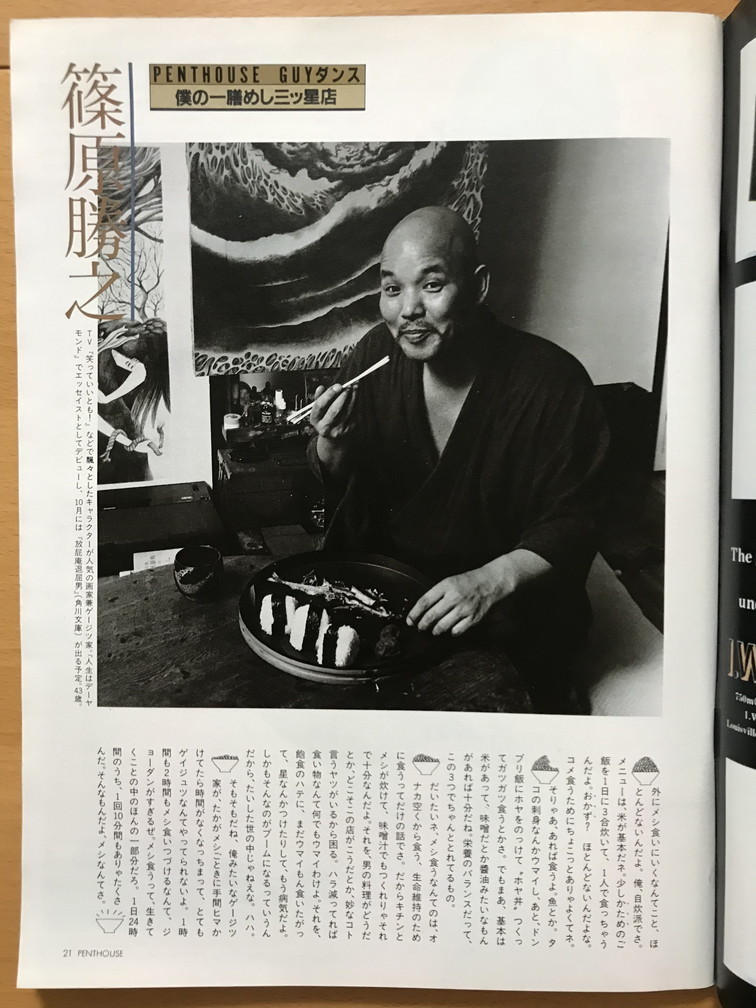 PENTHOUSE GUYダンス
僕の一膳めし三ッ星店
篠原勝之
TV『笑っていいとも!』などで飄々としたキャラクターが人気の画家兼ゲージツ家。『人生はデーヤ
モンド』でエッセイストとしてデビューし、10月には『放屁庵退屈男』(角川文庫)が出る予定。43歳。
外にメシ食いにいくなんてこと、ほ
とんどないんだよ。俺、自炊派でさ。
メニューは、米が基本だネ。少しかためのご
飯を1日に3合炊いて、1人で食っちゃう
んだよ。おかず? ほとんどないんだよな。
コメ食うためにちょこっとありゃよくてネ。
そりゃあ、あれば食うよ。魚とか。タ
コの刺身なんかウマイし。あと、ドン
ブリ飯にホヤをのっけて〝ホヤ丼〟つくっ
てガツガツ食うとかさ。でもまあ、基本は
米があって、味噌だとか醤油みたいなもん
があれば十分だね。栄養のバランスだって、
この3つでちゃんととれてるもの。
だいたいネ、メシ食うなんてのは、オ
ナカ空くから食う、生命維持のため
に食うってだけの話でさ。だからキチンと
メシが炊けて、味噌汁でもつくれりゃそれ
で十分なんだよ。それを、男の料理がどうだ
とか、どこそこの店がこうだとか、妙なコト
言うヤツがいるから困る。ハラ減ってれば
食い物なんて何でもウマイわけよ。それを、
飽食のハテに、まだウマイもん食いたがっ
て、星なんかつけたりして、もう病気だよ。
しかもそんなのがブームになるっていうん
だから、たいした世の中じゃねえな。ハハ。
そもそもだね、俺みたいなゲージツ
家が、たかがメシごときに手間ヒマか
けてたら時間がなくなっちまって、とても
ゲイジュツなんてやってられないよ。1時
間も2時間もメシ食いつづけるなんて、ジ
ョーダンがすぎるぜ。メシ食うって、生きて
くことの中のほんの一部分だろ。1日24時
間のうち、1回10分間もありゃたくさ
んだ。そんなもんだよ、メシなんてさ。
21 PENTHOUSE
The
und
I.W
750m
I.W
Louisville